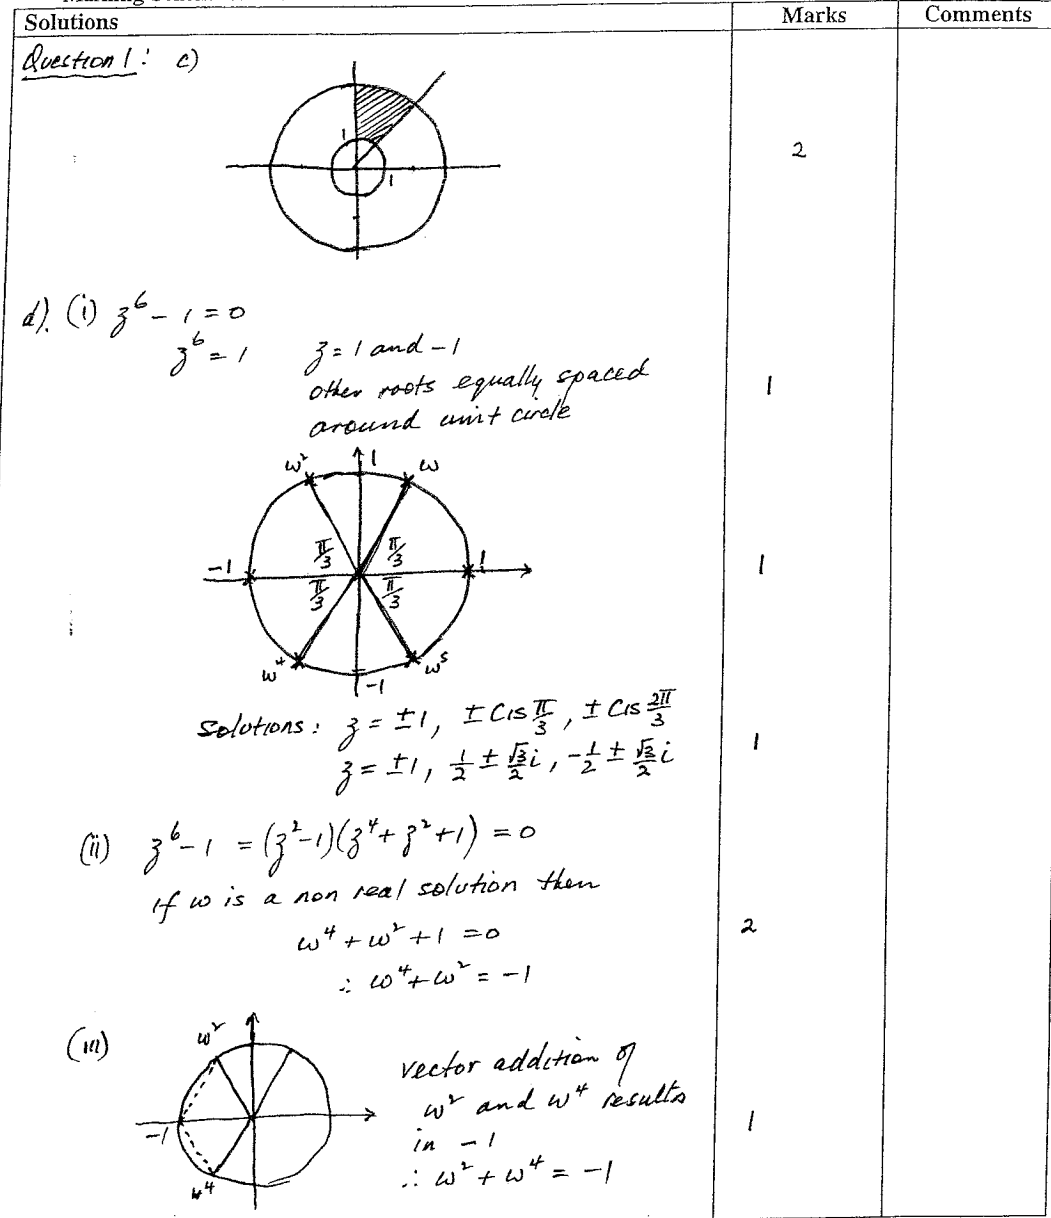 Solutions Marks Comments
Question 1: c)
1
1
2
d). (i) z⁶ - 1 = 0
z⁶ = 1 z = 1 and -1
other roots equally spaced 1
around unit circle
ω² 1 ω
π/3 π/3
-1 1 1
π/3 π/3
ω⁴ ω⁵
-1
Solutions: z = ±1, ± Cis π/3, ± Cis 2π/3
z = ±1, 1/2 ± √3/2 i, -1/2 ± √3/2 i 1
(ii) z⁶ - 1 = (z² - 1)(z⁴ + z² + 1) = 0
if ω is a non real solution then
ω⁴ + ω² + 1 = 0 2
∴ ω⁴ + ω² = -1
(iii) ω²
vector addition of
ω² and ω⁴ results
-1 in -1 1
ω⁴ ∴ ω² + ω⁴ = -1